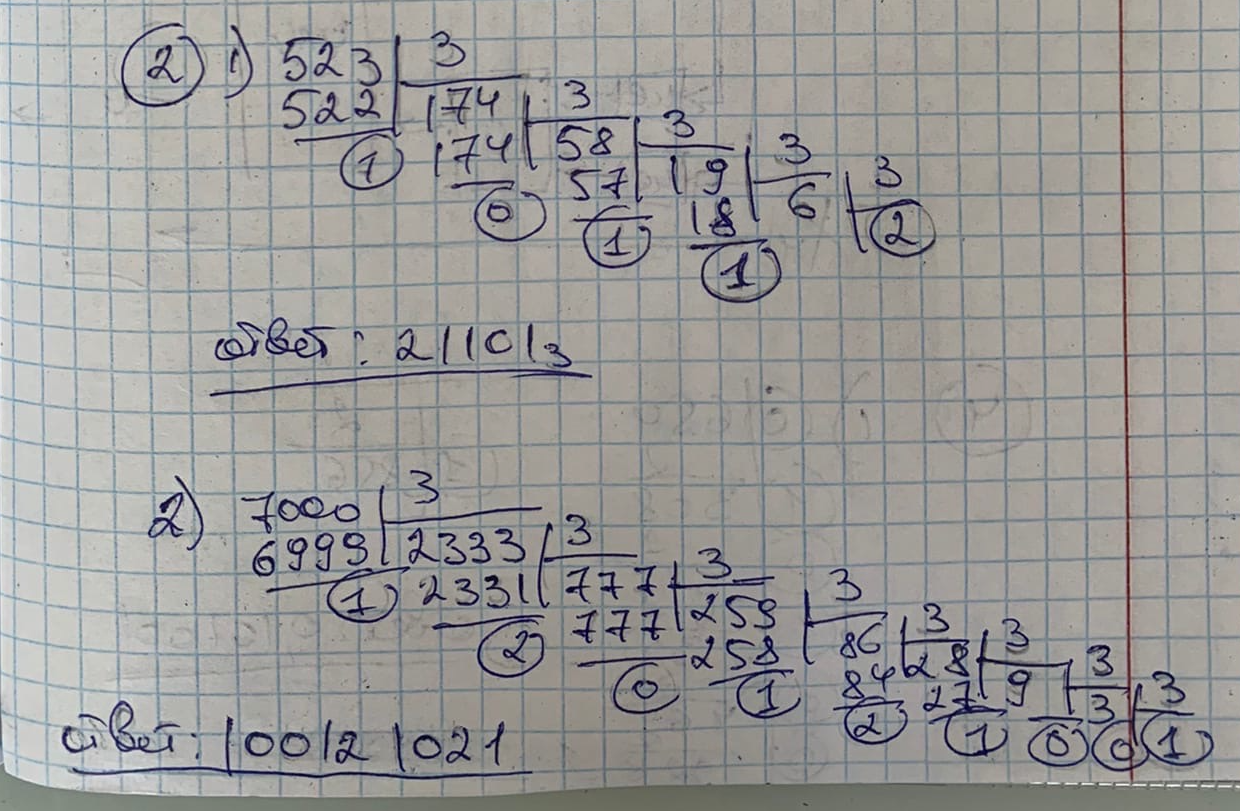 ② 1) 523 | 3
522 | 174 | 3
① 174 | 58 | 3
⓪ 57 | 19 | 3
① 18 | 6 | 3
① ②
ответ: 211013
2) 7000 | 3
6999 | 2333 | 3
① 2331 | 777 | 3
② 777 | 259 | 3
⓪ 258 | 86 | 3
① 84 | 28 | 3
② 27 | 9 | 3
① ⓪ 3 | 3
⓪ ①
ответ: 100121021